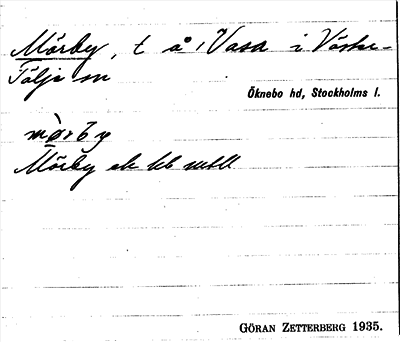 Mörby, t å Vasa i Väster-
Tälje sn
Öknebo hd, Stockholms l.
mørby
Mörby ek kb
GÖRAN ZETTERBERG 1935.